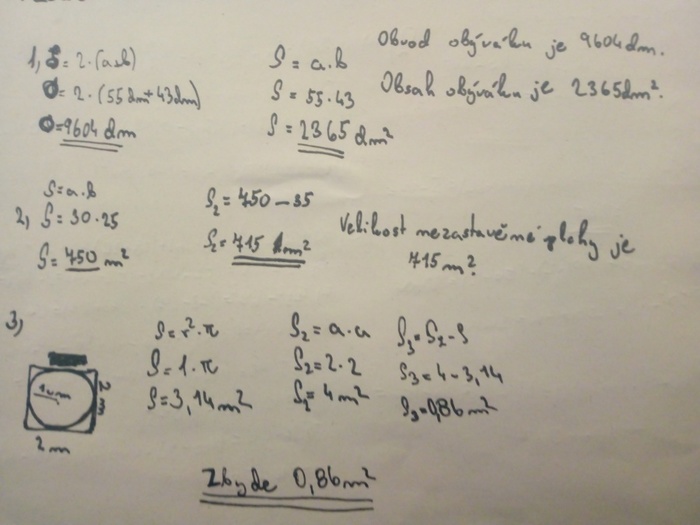 1, S = 2·(a+b)
O = 2·(55dm+43dm)
O = 9604 dm
S = a.b
S = 55·43
S = 2365 dm²
Obvod obýváku je 9604dm.
Obsah obýváku je 2365dm².
2, S = a.b
S = 30·25
S = 450 m²
S₂ = 450 - 35
S₂ = 715 m²
Velikost nezastavěné plohy je
715 m².
3)
1m
2 m
2 m
S = r²·π
S = 1·π
S = 3,14 m²
S₂ = a·a
S₂ = 2·2
S₂ = 4 m²
S₃ = S₂ - S
S₃ = 4 - 3,14
S₃ = 0,86 m²
Zbyde 0,86m²